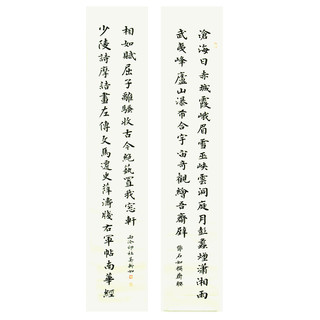 滄海日赤城霞峨眉雪巫峽雲洞庭月彭蠡煙瀟湘雨
武夷峰廬山瀑布合宇宙奇觀繪吾齋壁
鄧石如撰齋聯
少陵詩摩詰畫左傳文馬遷史薛濤牋右軍帖南華經
相如賦屈子離騷收古今絕藝置我窗軒
西泠印社